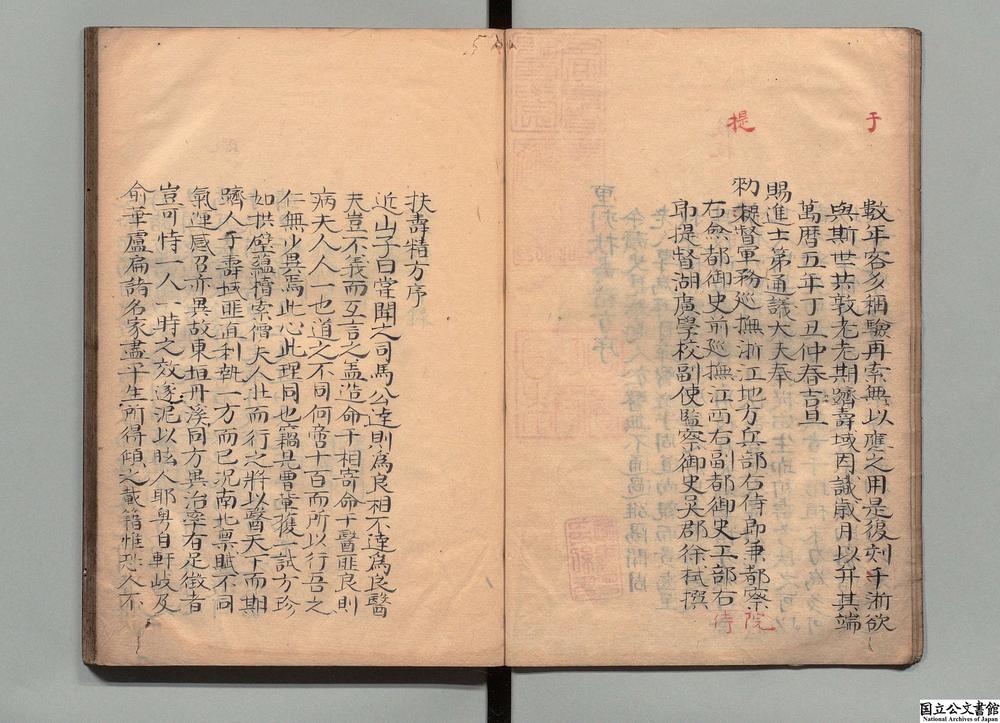 數年客多稱驗再索無以應之用是復刻于浙欲
與斯世共敦老老期躋壽域因識歲月以弁其端
萬曆五年丁丑仲春吉旦
賜進士第通議大夫奉
勑提督軍務巡撫浙江地方兵部右侍郎兼都察
右僉都御史前巡撫江西右副都御史工部右
郎提督湖廣學校副使監察御史吳郡徐栻撰
于
提
院
侍
扶壽精方序
近山子曰常聞之司馬公達則為良相不達為良醫
夫豈不義而互言之盖造命于相寄命于醫匪良則
病夫人人一也道之不同何啻十百而所以行吾之
仁無少異焉此心此理同也竊見曹菓獲一試方珍
如拱璧蘊櫝索價夫人壯而行之將以醫天下而期
躋人于壽域匪直利執一方而已況南北禀賦不同
氣運感召亦異故東垣丹溪同方異治率有足徵者
豈可恃一人一時之效遂泥以眩人耶粤自軒岐及
俞華盧扁諸名家盡平生所得傾之載籍惟恐人不
国立公文書館
National Archives of Japan